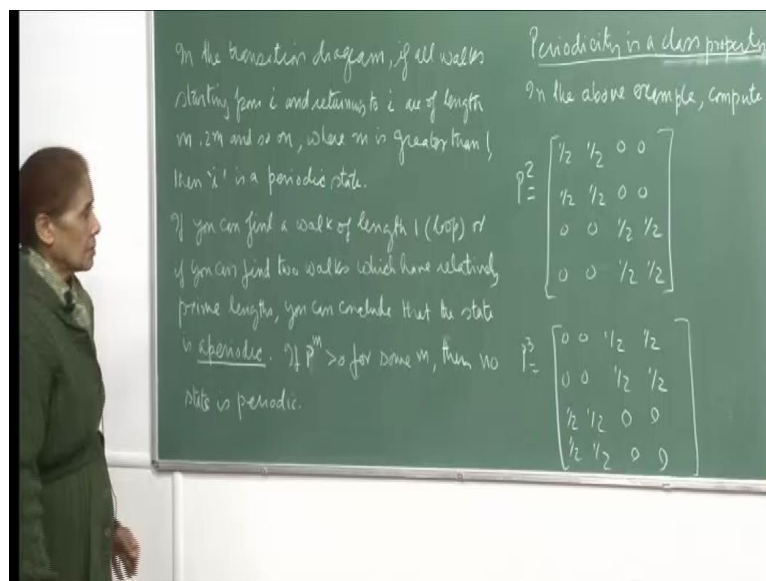 In the transition diagram, if all walks
starting from i and returning to i are of length
m, 2m and so on, where m is greater than 1,
then 'i' is a periodic state.
If you can find a walk of length 1 (loop) or
if you can find two walks which have relatively
prime lengths, you can conclude that the state
is aperiodic. If P^m > 0 for some m, then no
state is periodic.
Periodicity is a class property
In the above example, compute
P^2 =
1/2 1/2 0 0
1/2 1/2 0 0
0 0 1/2 1/2
0 0 1/2 1/2
P^3 =
0 0 1/2 1/2
0 0 1/2 1/2
1/2 1/2 0 0
1/2 1/2 0 0